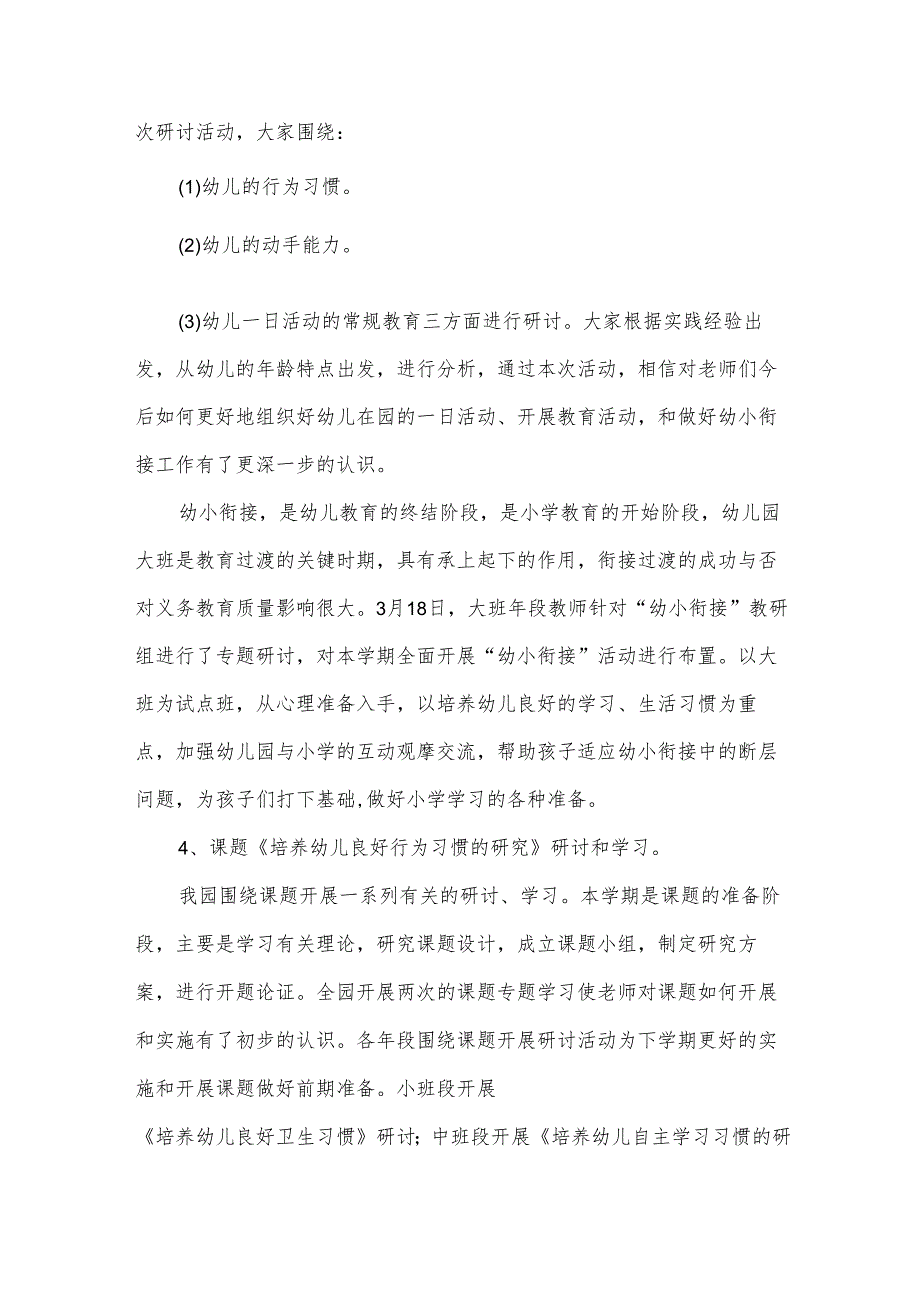 次研讨活动，大家围绕：
(1)幼儿的行为习惯。
(2)幼儿的动手能力。
(3)幼儿一日活动的常规教育三方面进行研讨。大家根据实践经验出
发，从幼儿的年龄特点出发，进行分析，通过本次活动，相信对老师们今
后如何更好地组织好幼儿在园的一日活动、开展教育活动，和做好幼小衔
接工作有了更深一步的认识。
幼小衔接，是幼儿教育的终结阶段，是小学教育的开始阶段，幼儿园
大班是教育过渡的关键时期，具有承上起下的作用，衔接过渡的成功与否
对义务教育质量影响很大。3月18日，大班年段教师针对“幼小衔接”教研
组进行了专题研讨，对本学期全面开展“幼小衔接”活动进行布置。以大
班为试点班，从心理准备入手，以培养幼儿良好的学习、生活习惯为重
点，加强幼儿园与小学的互动观摩交流，帮助孩子适应幼小衔接中的断层
问题，为孩子们打下基础,做好小学学习的各种准备。
4、课题《培养幼儿良好行为习惯的研究》研讨和学习。
我园围绕课题开展一系列有关的研讨、学习。本学期是课题的准备阶
段，主要是学习有关理论，研究课题设计，成立课题小组，制定研究方
案，进行开题论证。全园开展两次的课题专题学习使老师对课题如何开展
和实施有了初步的认识。各年段围绕课题开展研讨活动为下学期更好的实
施和开展课题做好前期准备。小班段开展
《培养幼儿良好卫生习惯》研讨；中班段开展《培养幼儿自主学习习惯的研